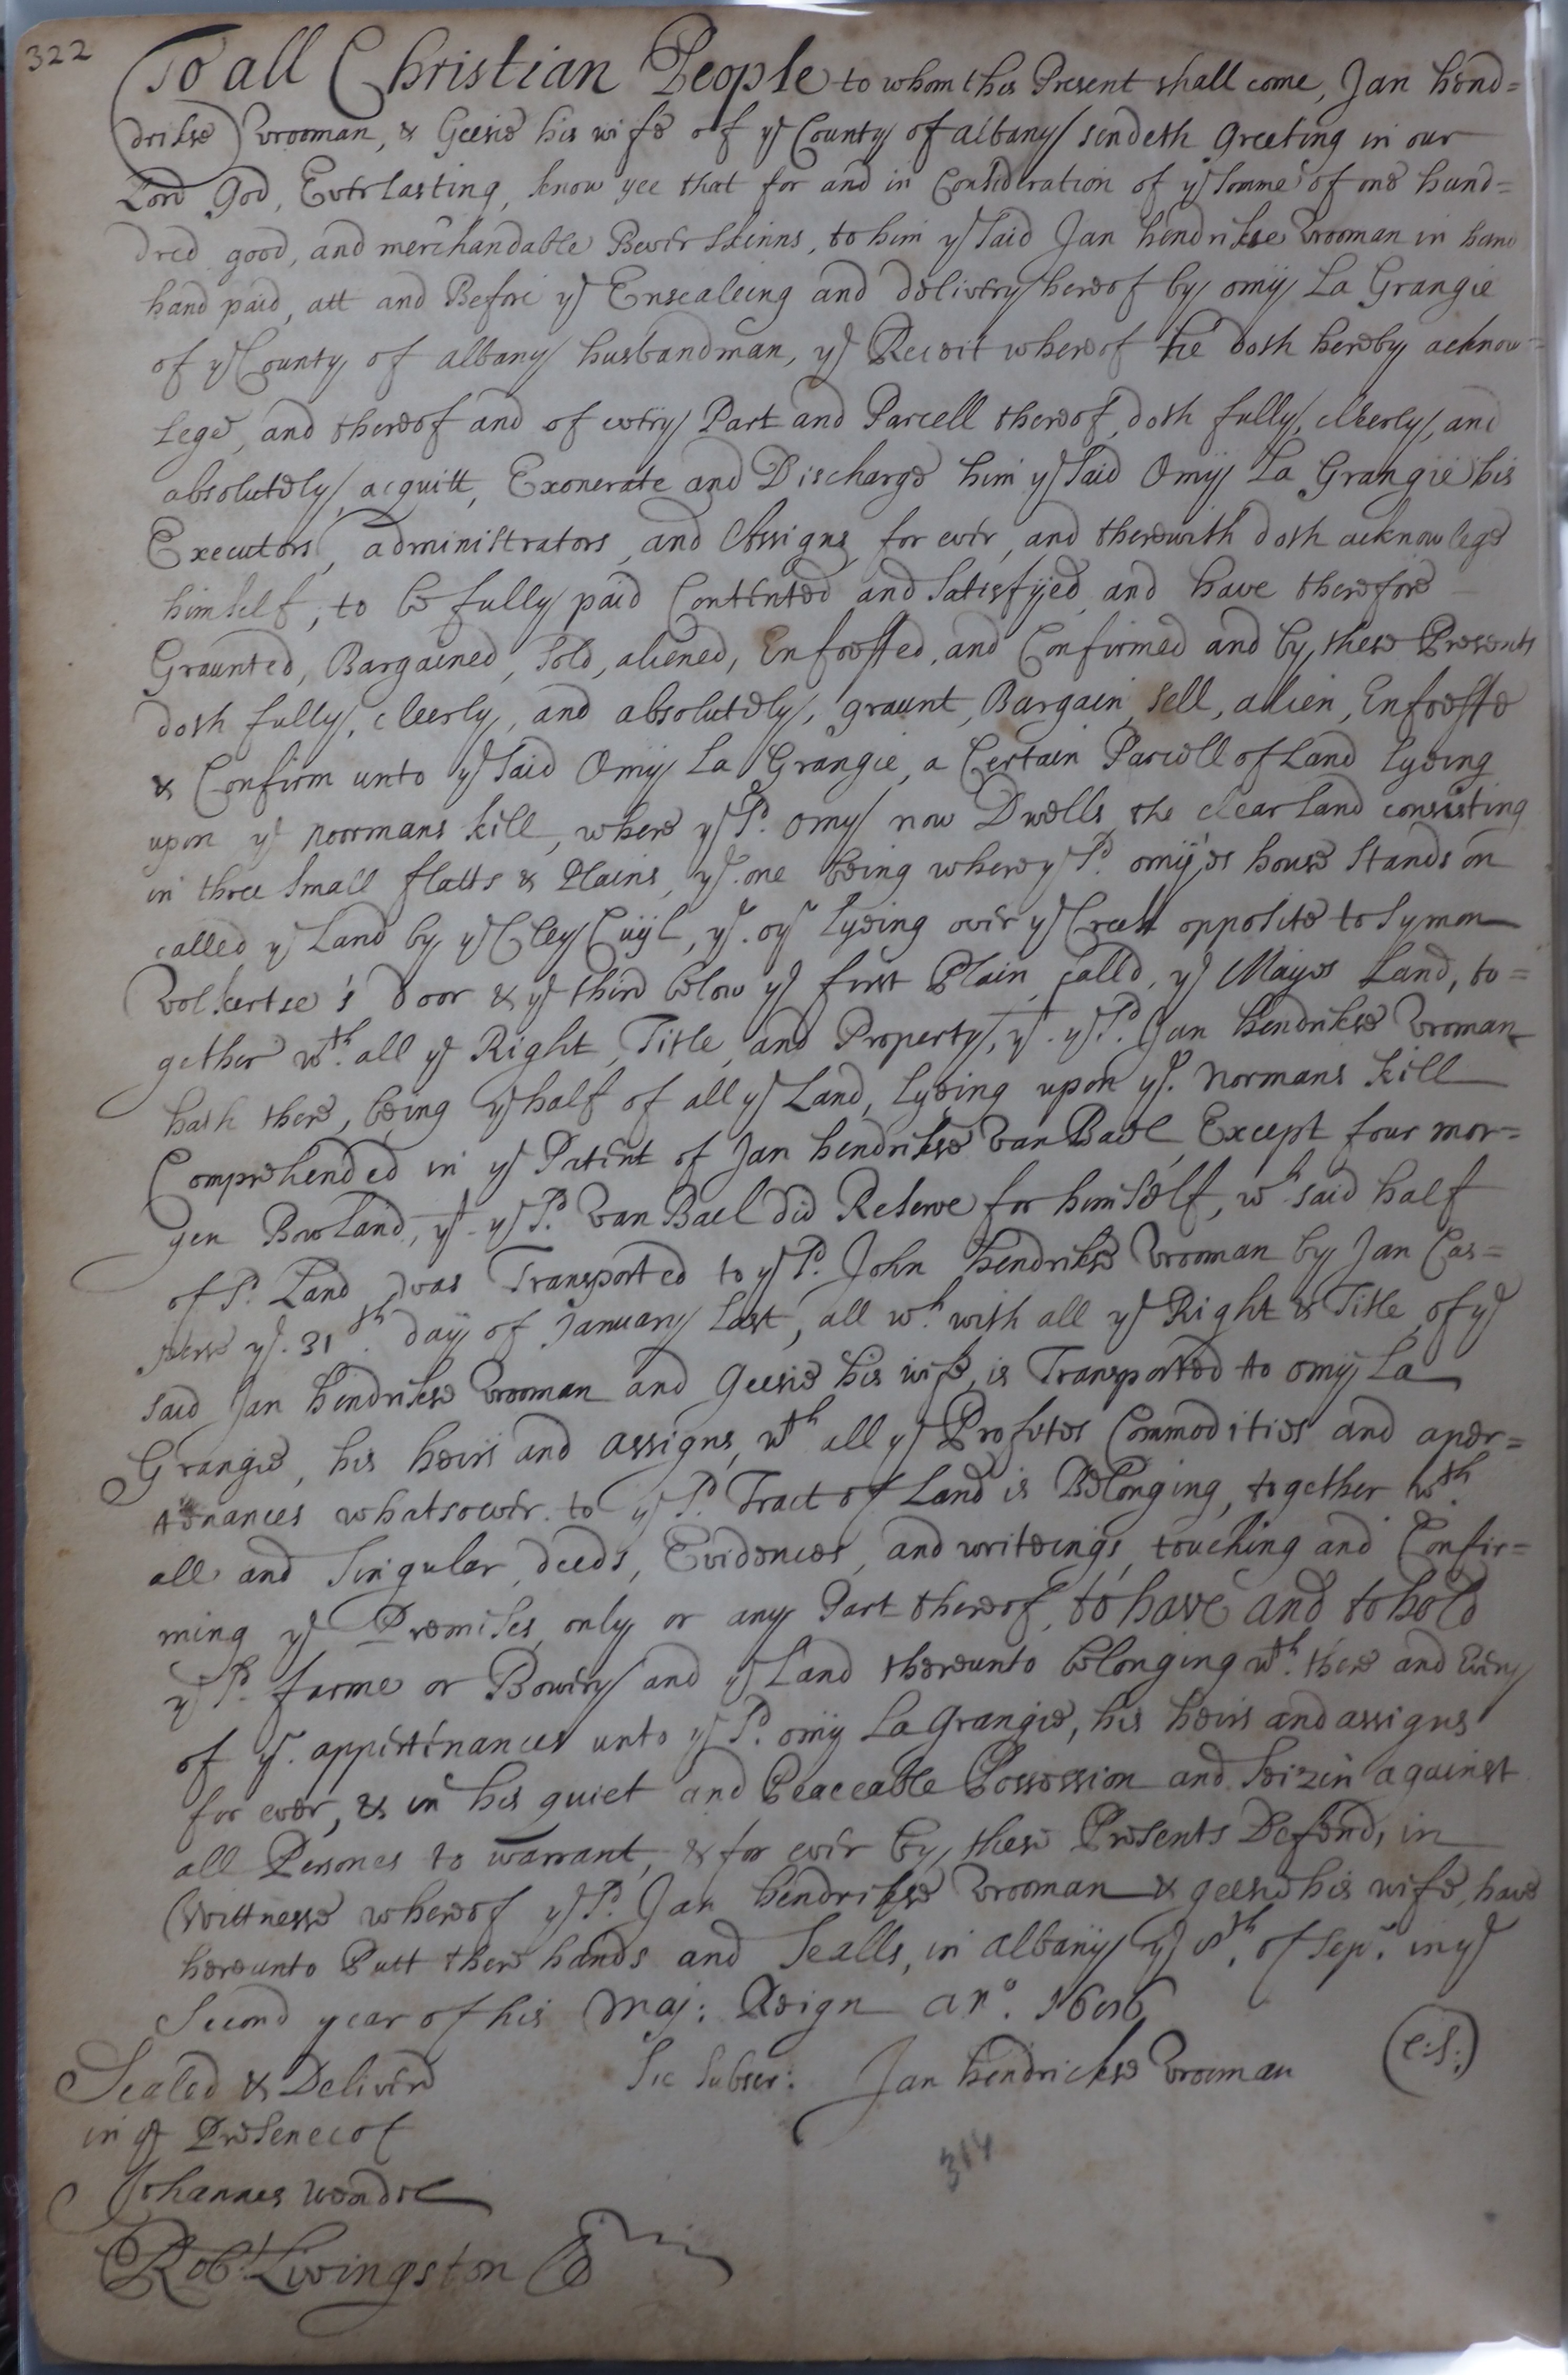 322
To all Christian People to whom this Present shall come, Jan hend=
drikse Vrooman, & Geesie his wife of ye County of albany sendeth Greeting in our
Lord God, Everlasting, know yee that for and in Consideration of ye Somme of one hund=
dred good, and merchandable Bever Skinns, to him ye Said Jan hendrikse Vrooman in hand
hand paid, att and Before ye Ensealeing and delivery hereof by omij La Grangie
of ye County of albany husbandman, ye Receit whereof he doth hereby acknow=
lege, and thereof and of every Part and Parcell thereof, doth fully, cleerly, and
absolutely, acquitt, Exonerate and Discharge him ye Said Omij La Grangie his
Executors, administrators, and Assigns, for ever, and therewith doth acknowlege
himself, to be fully paid Contented and Satisfyed, and have therefore
Graunted, Bargained, Sold, aliened, Enfoeffed, and Confirmed and by these Presents
doth fully, cleerly, and absolutely, graunt, Bargain, Sell, alien, Enfoeffe
& Confirm unto ye Said Omij La Grangie, a Certain Parcell of Land Lyeing
upon ye noormans kill, where ye Sd. omy now Dwells, the clear Land consisting
in three Small flatts & Plains, ye. one being where ye Sd. omij'es house Stands on
called ye Land by ye Cley Cuyl, ye. oyr Lyeing over ye Creek opposite to Symon
Volkertse's door & ye third below ye first Plain, calld, ye Mayes Land, to=
gether wth. all ye Right, Title, and Property, yt. ye Sd. Jan hendrikse Vroman
hath there, being ye half of all ye Land, Lyeing upon ye. Normans kill
Comprehended in ye Patent of Jan hendrikse van Bael, Except four mor=
gen Bowland, yt. ye Sd. van Bael did Reserve for himself, wh. said half
of Sd. Land was Transported to ye Sd. John hendrikse Vrooman by Jan Cas=
perse ye. 31th. day of January Last, all wh. with all ye Right & Title of ye
said Jan hendrikse Vrooman and Geesie his wife, is Transported to omij La
Grangie, his heirs and assigns, wth all ye Profites Commodities and aper=
tenances whatsoever. to ye Sd. Tract of Land is Belonging, together wth.
all and Singular, deeds, Evidences, and writeings, touching and Confir=
ming ye Premises, only or any Part thereof, to have and to hold
ye Sd. farme or Bowery and ye Land thereunto belonging wth. there and Every
of ye. appertenances unto ye Sd. omij La Grangie, his heirs and assigns
for ever, & in his quiet and Peaceable Possession and Seizin against
all Persones to warrant, & for ever by these Presents Defend, in
Wittnesse whereof ye Sd. Jan hendrikse Vrooman & geesie his wife, have
hereunto Putt there hands and Sealls, in albany ye 8th. of Sepr. in ye
Second year of his Maj: Reign an°. 1686
Sealed & Deliverd
Sic Subscr: Jan hendrickse Vrooman (L:S:)
in ye Presence of
Johannes Wendel
314
Robt. Livingston